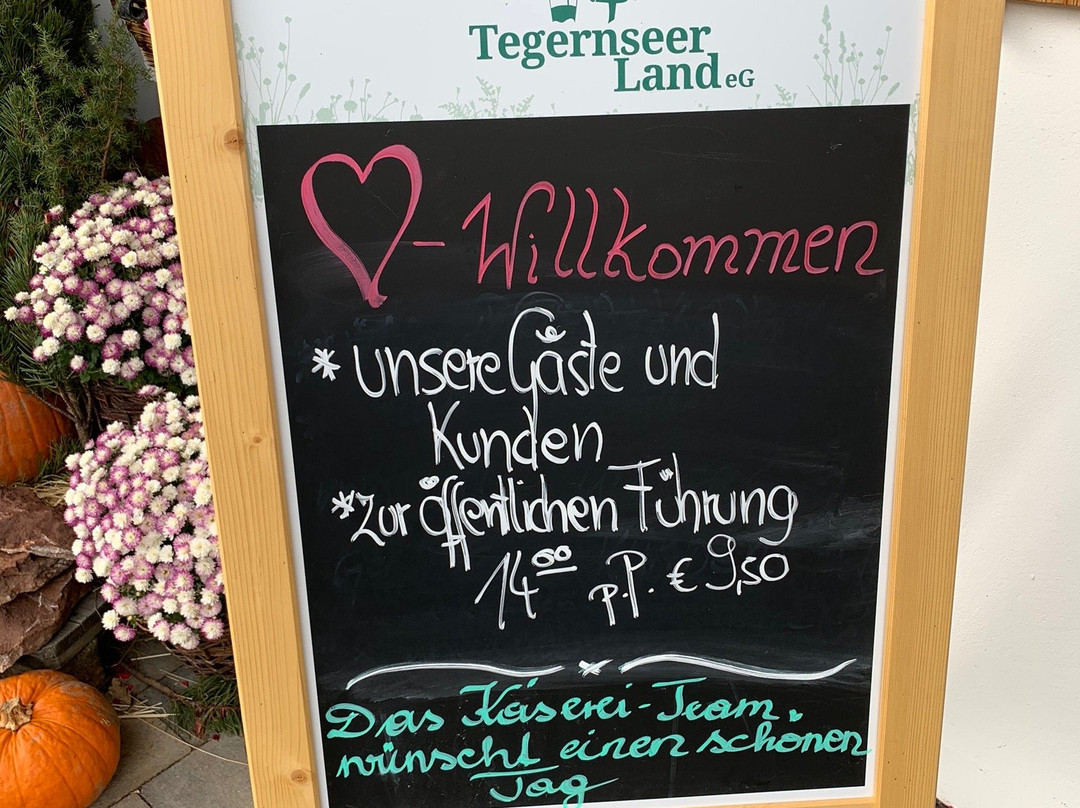 Tegernseer
Land eG
♡-Willkommen
* unsere Gäste und
Kunden
* Zur öffentlichen Führung
14 00 p.P. € 9,50
Das Käserei-Team
wünscht einen schönen
Tag